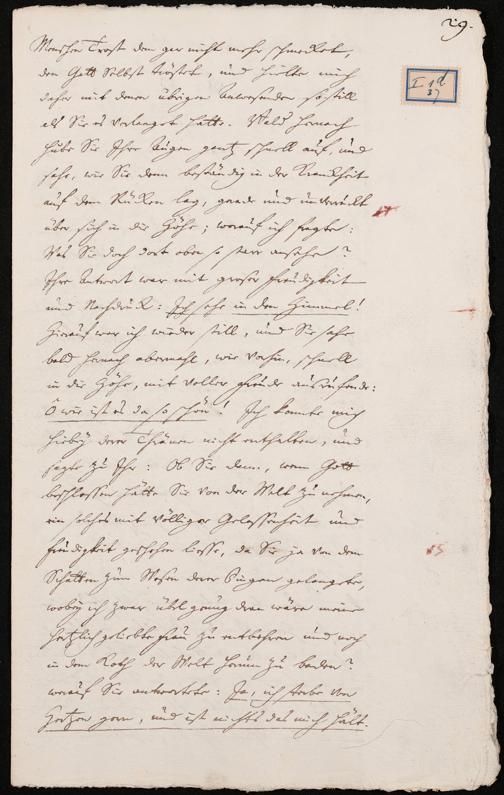 29.
I 1d
37
Menschen Trost dem gar nicht mehr schmecket,
den Gott Selbst tröstet, und hielte mich
daher mit denen übrigen Anwesenden so still
als Sie es verlanget hatte. Bald hernach
hube Sie Ihre Augen gantz schnell auf, und
sahe, wie Sie dann beständig in der Kranckheit
auf dem Rücken lag, gerade und unverrückt
über sich in die Höhe; worauf ich fragte:
Was Sie doch dort oben so starr ansehe?
Ihre Antwort war mit groser Freudigkeit
und Nachdruck: Ich sehe in den Himmel!
Hierauf war ich wieder still, und Sie sahe
bald hernach abermahl, wie vorhin, schnell
in die Höhe, mit voller Freude ausrufende:
O wie ist es da so schön! Ich konnte mich
hiebey derer Thränen nicht enthalten, und
sagte zu Ihr: Ob Sie dann, wenn Gott
beschlossen hätte Sie von der Welt zu nehmen,
ein solches mit völliger Gelassenheit und
Freudigkeit geschehen liesse, da Sie ja von dem
Schatten zum Wesen derer Dingen gelangete,
wobey ich zwar übel genug dran wäre meine
hertzlich geliebte Frau zu entbehren und noch
in dem Koth der Welt herum zu baden?
worauf Sie antwortete: Ja, ich sterbe von
Hertzen gern, und ist nichts das mich hält.